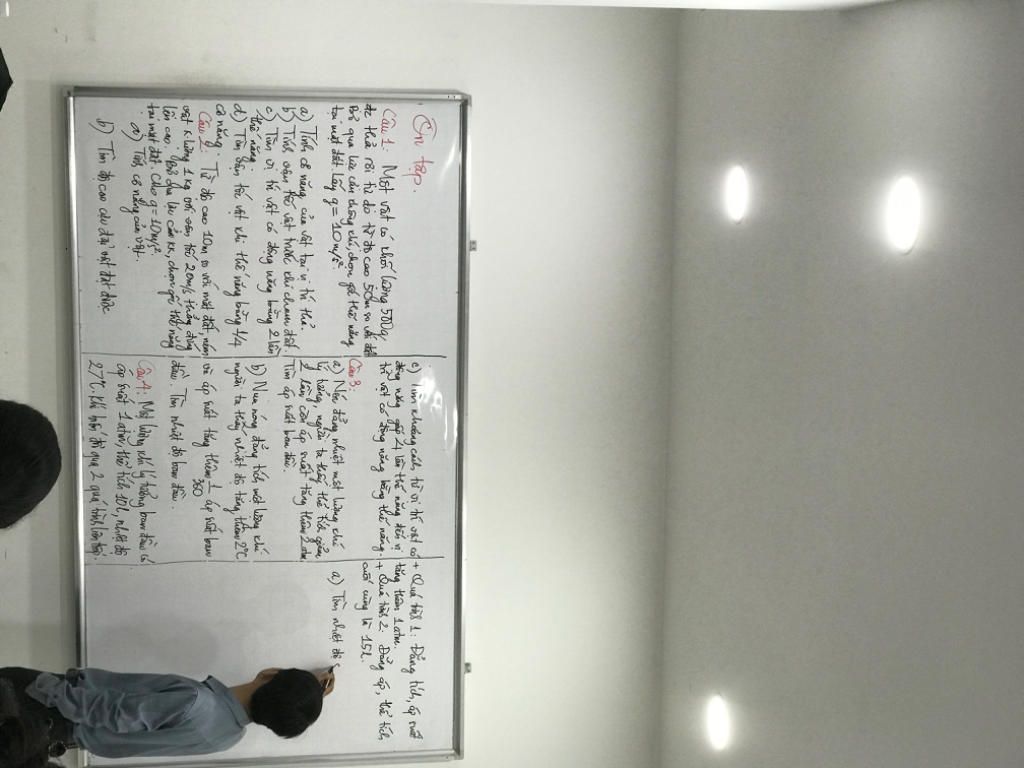 Ôn tập.
Câu 1: Một vật có khối lượng 500g
được thả rơi tự do từ độ cao 50m so với đất
Bỏ qua lực cản không khí, chọn gốc thế năng
tại mặt đất. Lấy g = 10 m/s².
a) Tính cơ năng của vật tại vị trí thả.
b) Tính vận tốc vật trước khi chạm đất.
c) Tìm vị trí vật có động năng bằng 2 lần
thế năng
d) Tìm vận tốc vật khi thế năng bằng 1/4
cơ năng.
Câu 2: Từ độ cao 10m so với mặt đất, ném
vật k.lượng 1kg với vận tốc 20m/s thẳng đứng
lên cao. Bỏ qua lực cản kk, chọn gốc thế năng
tại mặt đất. Cho g = 10m/s².
a) Tính cơ năng của vật.
b) Tìm độ cao cực đại vật đạt được
c) Tìm khoảng cách từ vị trí vật có
động năng gấp 4 lần thế năng đến vị
trí vật có động năng bằng thế năng.
Câu 3:
a) Nén đẳng nhiệt một lượng khí
lý tưởng, người ta thấy thể tích giảm
lần còn áp suất tăng thêm 2 atm
Tìm áp suất ban đầu.
b) Nung nóng đẳng tích một lượng khí
người ta thấy nhiệt độ tăng thêm 2°C
và áp suất tăng thêm 1/360 áp suất ban
đầu. Tìm nhiệt độ ban đầu.
Câu 4: Một lượng khí lý tưởng ban đầu có
áp suất 1 atm, thể tích 10l, nhiệt độ
27°C. Khí biến đổi qua 2 quá trình liên tiếp.
+ Quá trình 1: Đẳng tích, áp suất
tăng thêm 1 atm.
+ Quá trình 2: Đẳng áp, thể tích
cuối cùng là 15L.
a) Tìm nhiệt độ